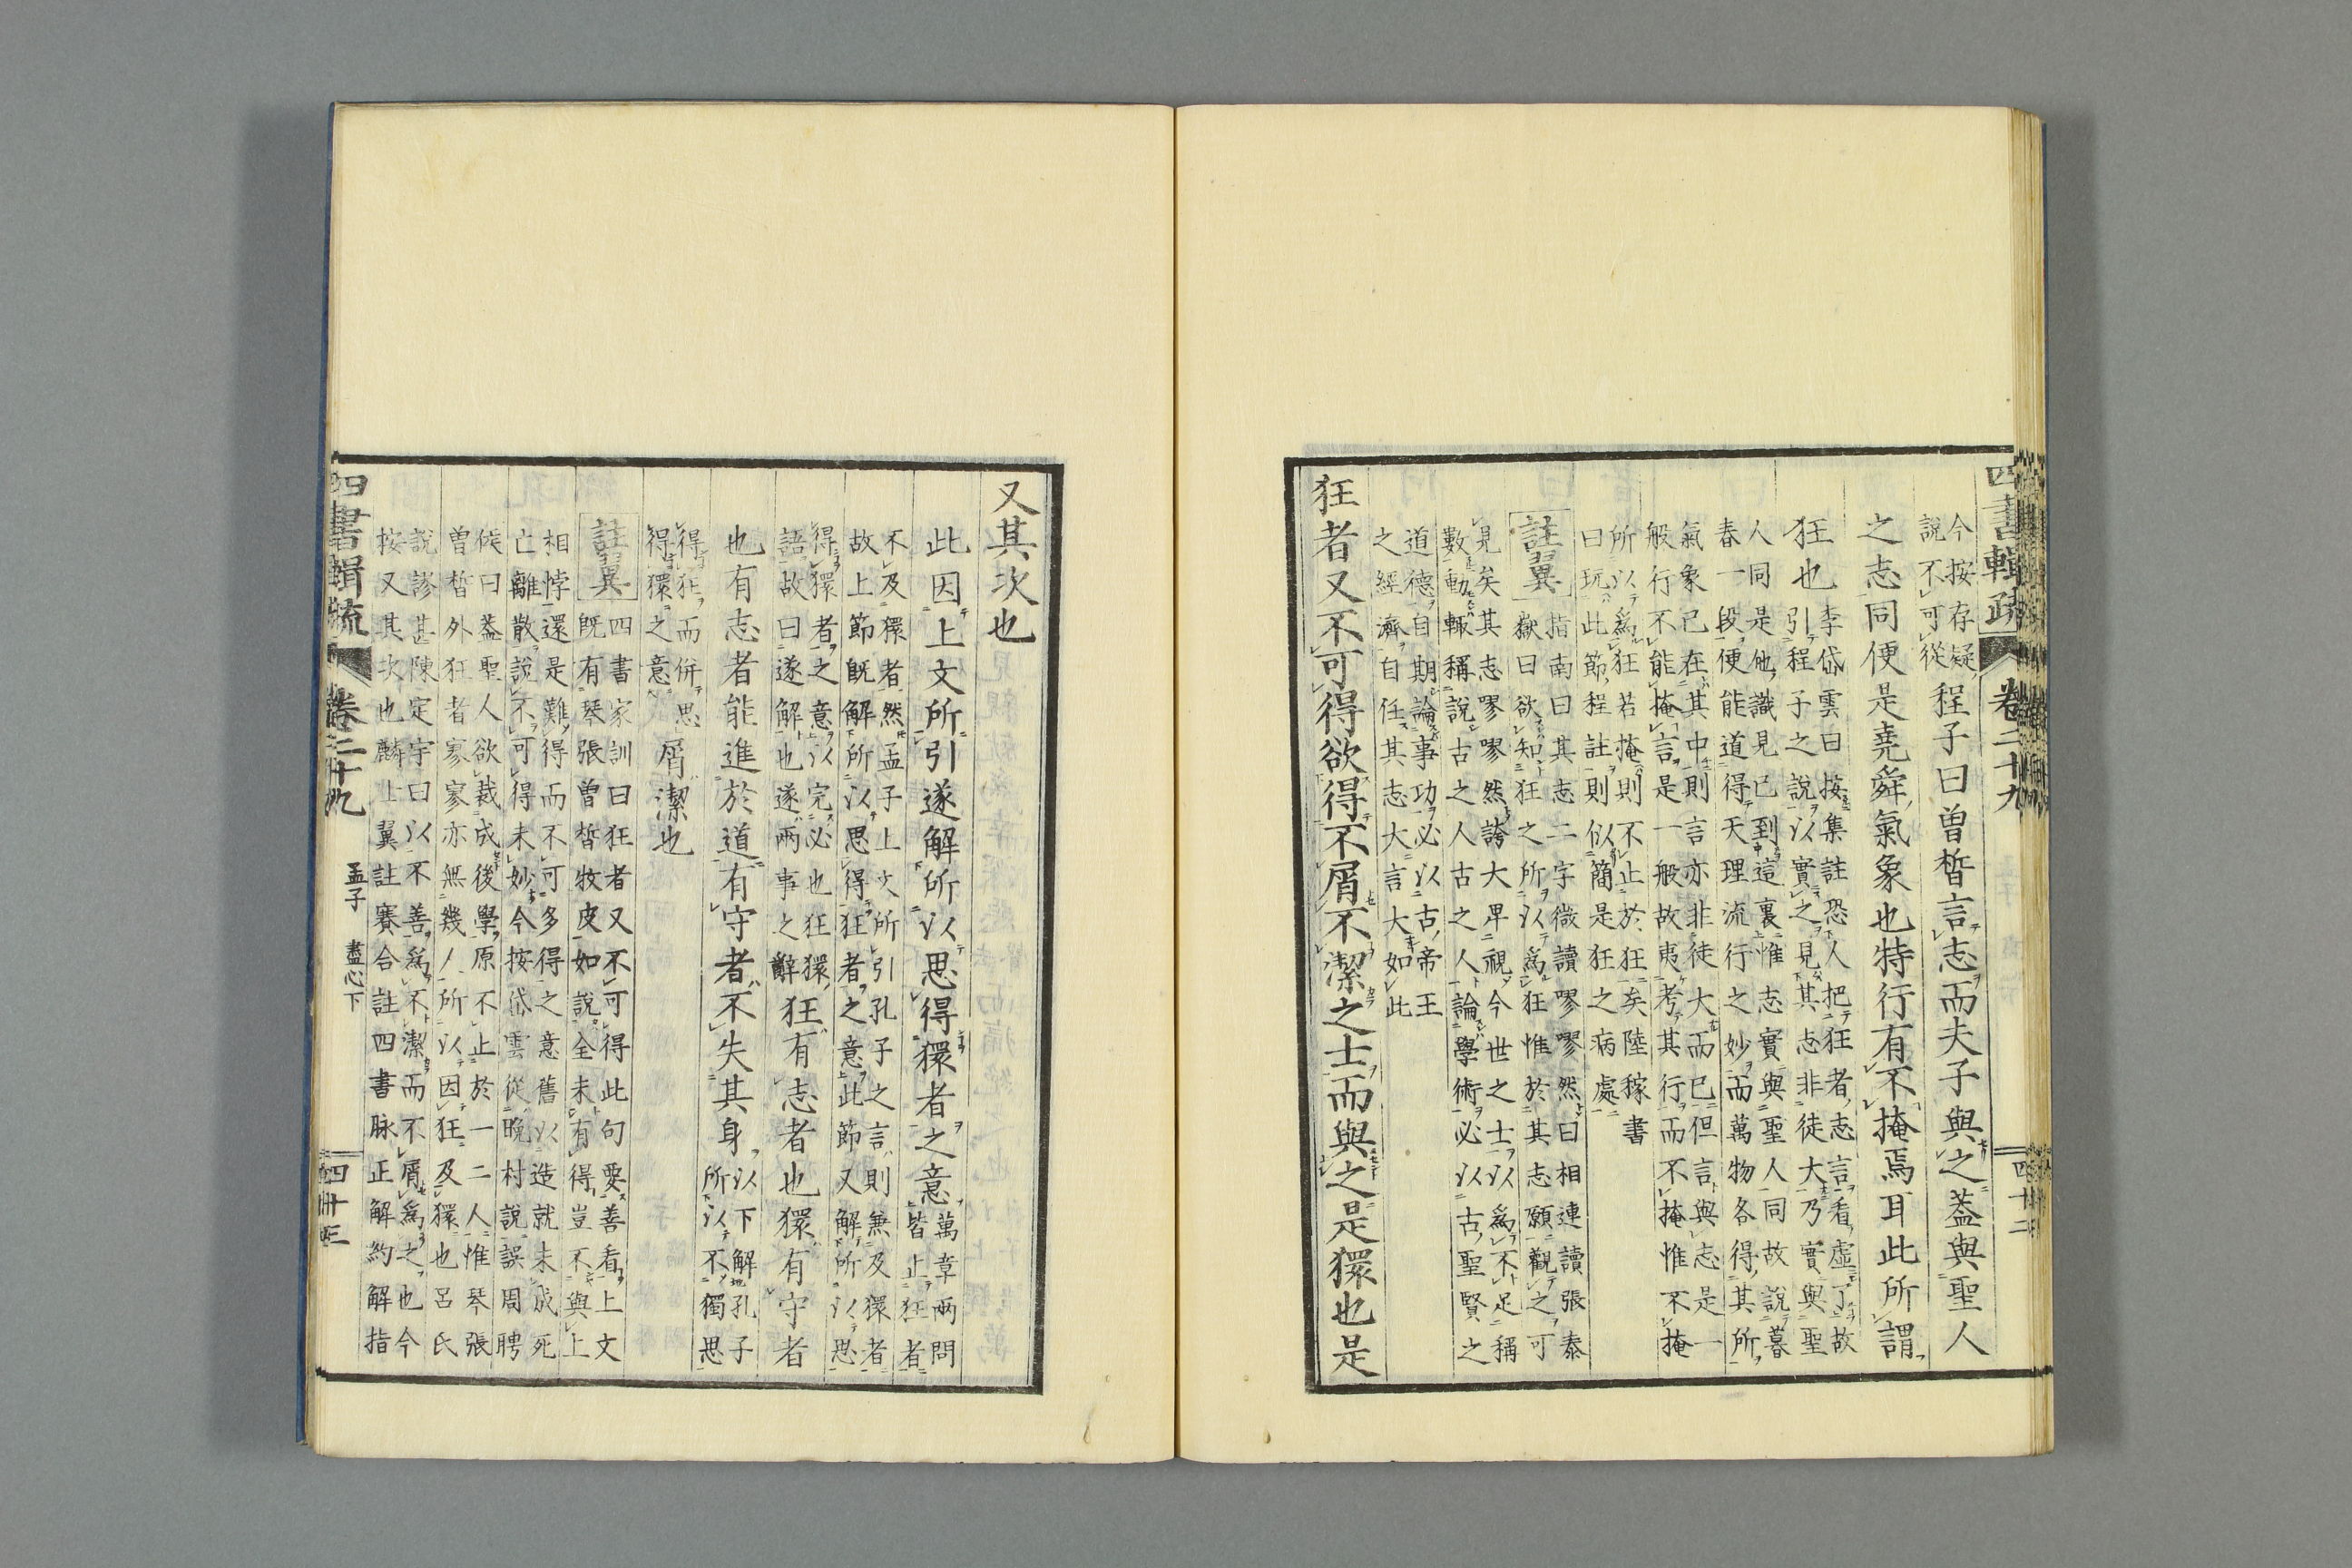 四書輯疏 卷二十九 四十二
今按存疑
說不可從
程子曰曾皙言志而夫子與之蓋與聖人
之志同便是堯舜氣象也特行有不掩焉耳此所謂
狂也
李岱雲曰按集註恐人把狂者志言看虛了故
引程子之說以實之見其志非徒大乃實與聖
人同是他識見已到這裏惟志實與聖人同故說暮
春一段便能道得天理流行之妙而萬物各得其所
氣象已在其中則言亦非徒大而已但言與志是一
般行不能掩言是一般故夷考其行而不掩惟不掩
所以爲狂若掩則不止於狂矣陸稼書
曰玩此節程註則似簡是狂之病處
註翼
指南曰其志二字微讀嘐嘐然曰相連讀張泰
嶽曰欲知狂之所以爲狂惟於其志願觀之可
見矣其志嘐嘐然誇大卑視今世之士以爲不足稱
數動輒稱說古之人古之人論學術必以古聖賢之
道德自期論事功必以古帝王
之經濟自任其志大言大如此
狂者又不可得欲得不屑不潔之士而與之是獧也是
又其次也
此因上文所引遂解所以思得獧者之意
萬章兩問
皆止狂者
不及獧者然孟子上文所引孔子之言則兼及獧者
故上節既解所以思得狂者之意此節又解所以思
得獧者之意以完必也狂獧
語故曰遂解也遂兩事之辭
狂有志者也獧有守者
也有志者能進於道有守者不失其身
以下解孔子
所以不獨思
得狂而併思
得獧之意
屑潔也
註翼
四書家訓曰狂者又不可得此句要善看上文
既有琴張曾皙牧皮如說全未有得豈不與上
相悖還是難得而不可多得之意舊以造就未成死
亡離散說不可得未妙今按岱雲從晚村說誤周聘
候曰蓋聖人欲裁成後學原不止於一二人惟琴張
曾皙外狂者寥寥亦無幾人所以因狂及獧也呂氏
說謬甚陳定宇曰以不善爲不潔而不屑爲之也今
按又其次也麟士翼註賽合註四書脉正解約解指
四書輯疏 卷二十九 孟子 盡心下 四十三